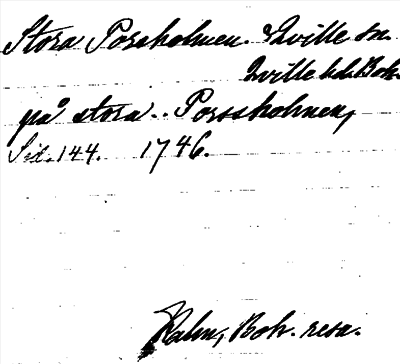 Stora Porsholmen. Qville sn
Qville hd. Boh.
på stora.. Porssholmen,
Sid. 144. 1746.
Kalm, Boh. resa.